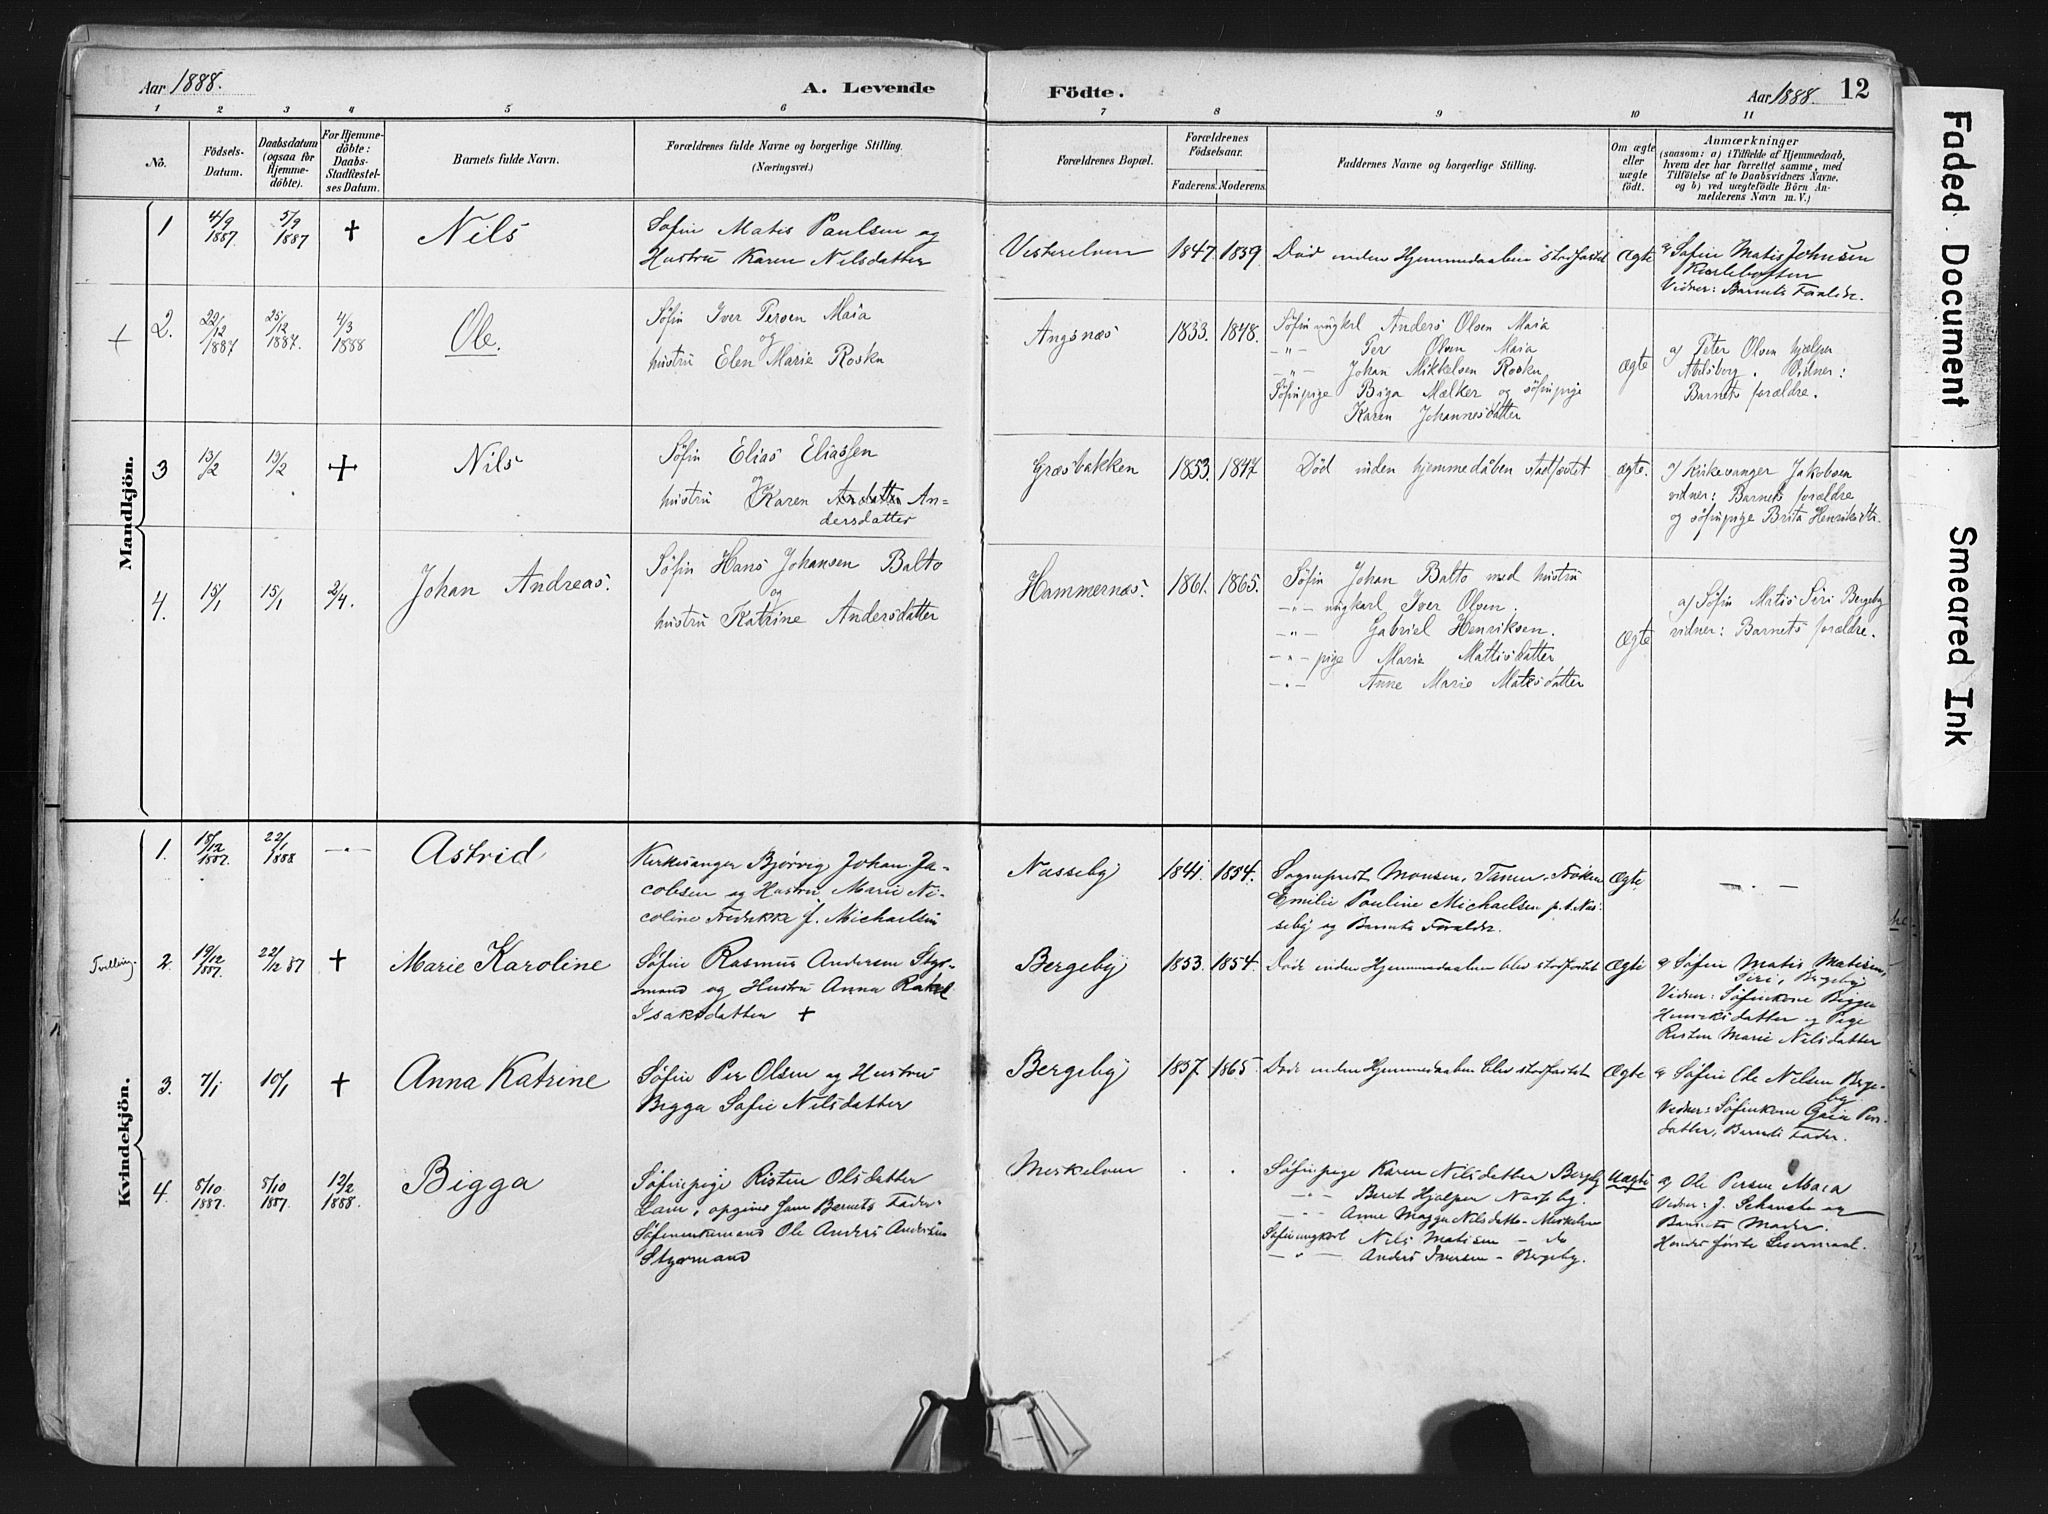 Aar 1888.
A. Levende
Födte.
Aar 1888.
12
1 2 3 4 5 6 7 8 9 10 11
Nō.
Födsels-Datum.
Daabsdatum (ogsaa for Hjemme-döbte).
For Hjemme-döbte: Daabs-Stadfæstel-ses Datum.
Barnets fulde Navn.
Forældrenes fulde Navne og borgerlige Stilling.
(Næringsvei.)
Forældrenes Bopæl.
Forældrenes Födselsaar.
Faderens. Moderens.
Faddernes Navne og borgerlige Stilling.
Om ægte eller uægte födt.
Anmærkninger
(saasom: a) i Tilfælde af Hjemmedaab,
hvem der har forrettet samme, med
Tilföielse af to Daabsvidners Navne,
og b) ved uægtefödte Börn An-
melderens Navn m. V.)
Mandkjön.
1 4/9 1887 5/9 1887 + Nils
Søfin Matis Paulsen og
Hustru Karen Nilsdatter
Vesterelven 1847. 1859. Død inden Hjemmedaaben stadfæstet Ægte
a) Søfin Matis Johnsen
Karlebotten
Vidner: Barnets Forældr.
+ 2. 22/12 1887 25/12 1887. 4/3 1888 Ole.
Søfin Iver Persen Maia
og
hustru Elen Marie Roska
Angsnæs 1833. 1848.
Søfin ungkarl Anders Olsen Maia
-"- Per Olsen Maia
-"- Johan Mikkelsen Roska
Søfinpige Biga Mælker og søfinpige
Karen Johannesdatter
Ægte
a) Peter Olsen hjælper
Abilsborg. Vidner:
Barnets forældre.
3 13/2 19/2 + Nils
Søfin Elias Eliassen
og
hustru Karen An-
dersdatter
Græsbakken 1853. 1847 Død inden hjemmedåben stadfæstet ægte.
a) Kirkesanger Jakobsen
vidner: Barnets forældre
og søfinpige Brita Henriksdtr.
4. 15/1 15/1 2/4. Johan Andreas.
Søfin Hans Johansen Balto
og
hustru Katrine Andersdatter
Hammernæs. 1861. 1865.
Søfin Johan Balto med hustru
-"- ungkarl Iver Olsen.
-"- Gabriel Henriksen.
-"- pige Maria Mattisdatter
-"- Anne Marie Matisdatter
Ægte
a) Søfin Matis Siri Bergeby
vidner: Barnets forældre.
Kvindekjön.
1. 18/12 1887. 22/1 1888 -"- Astrid
Kirkesanger Bjørvig Johan Ja-
cobsen og Hustru Marie Ni-
coline Fredrikke f. Michaelsen
Næsseby 1841. 1854.
Sogneprest Monsen, Tanen, Frøken
Emilie Pauline Michaelsen p.t. Næs-
seby og Barnets Forældr.
Ægte -"-
Tvilling. 2. 19/12 1887. 22/12 87 + Marie Karoline
Søfin Rasmus Andersen Styr-
mand og Hustru Anna Rakel
Isaksdatter +
Bergeby 1853. 1854. Døde inden Hjemmedaaben blev stadfæstet Ægte
a) Søfin Matis Matisen,
Siri, Bergeby
Vidner: Søfinkone Bigga
Henriksdatter og Pige
Risten Marie Nilsdatter
3. 7/1 10/1 + Anna Katrine
Søfin Per Olsen og Hustru
Bigga Sofie Nilsdatter
Bergeby 1857. 1865. Døde inden Hjemmedaaben blev stadfæstet Ægte
a) Søfin Ole Nilsen Berge-
by
Vidner: Søfinkone Per-
datter, Barnets Fader.
4. 8/10 1887. 8/10 1887. 12/2 1888. Bigga
Søfinpige Risten Olsdatter
opgiver som Barnets Fader
Søfinunkemand Ole Anders Andersen
Styrmand
Meskelven . .
Søfinpige Karen Nilsdatter Bergeby
-"- Berit Hjelper Næsseby.
-"- Anne Magga Nilsdatter Meskelven
Søfinungkarl Nils Matisen - do
-"- Anders Iversen - Bergeby.
Uægte
a) Ole Persen Maia
Vidner: J. Schanche og
Barnets Moder.
Hendes første Leiermaal.
Faded Document
Smeared Ink